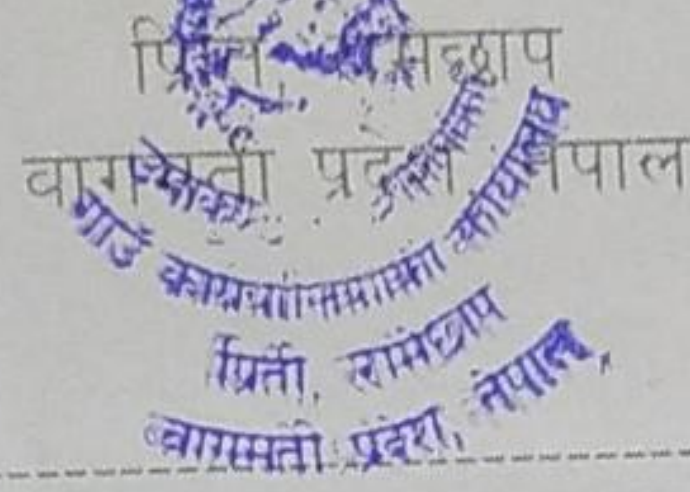 प्रिती रामेछाप
वागमती प्रदेश नेपाल
गाउँ कार्यपालिकाको कार्यालय
प्रिती, रामेछाप
वागमती प्रदेश, नेपाल